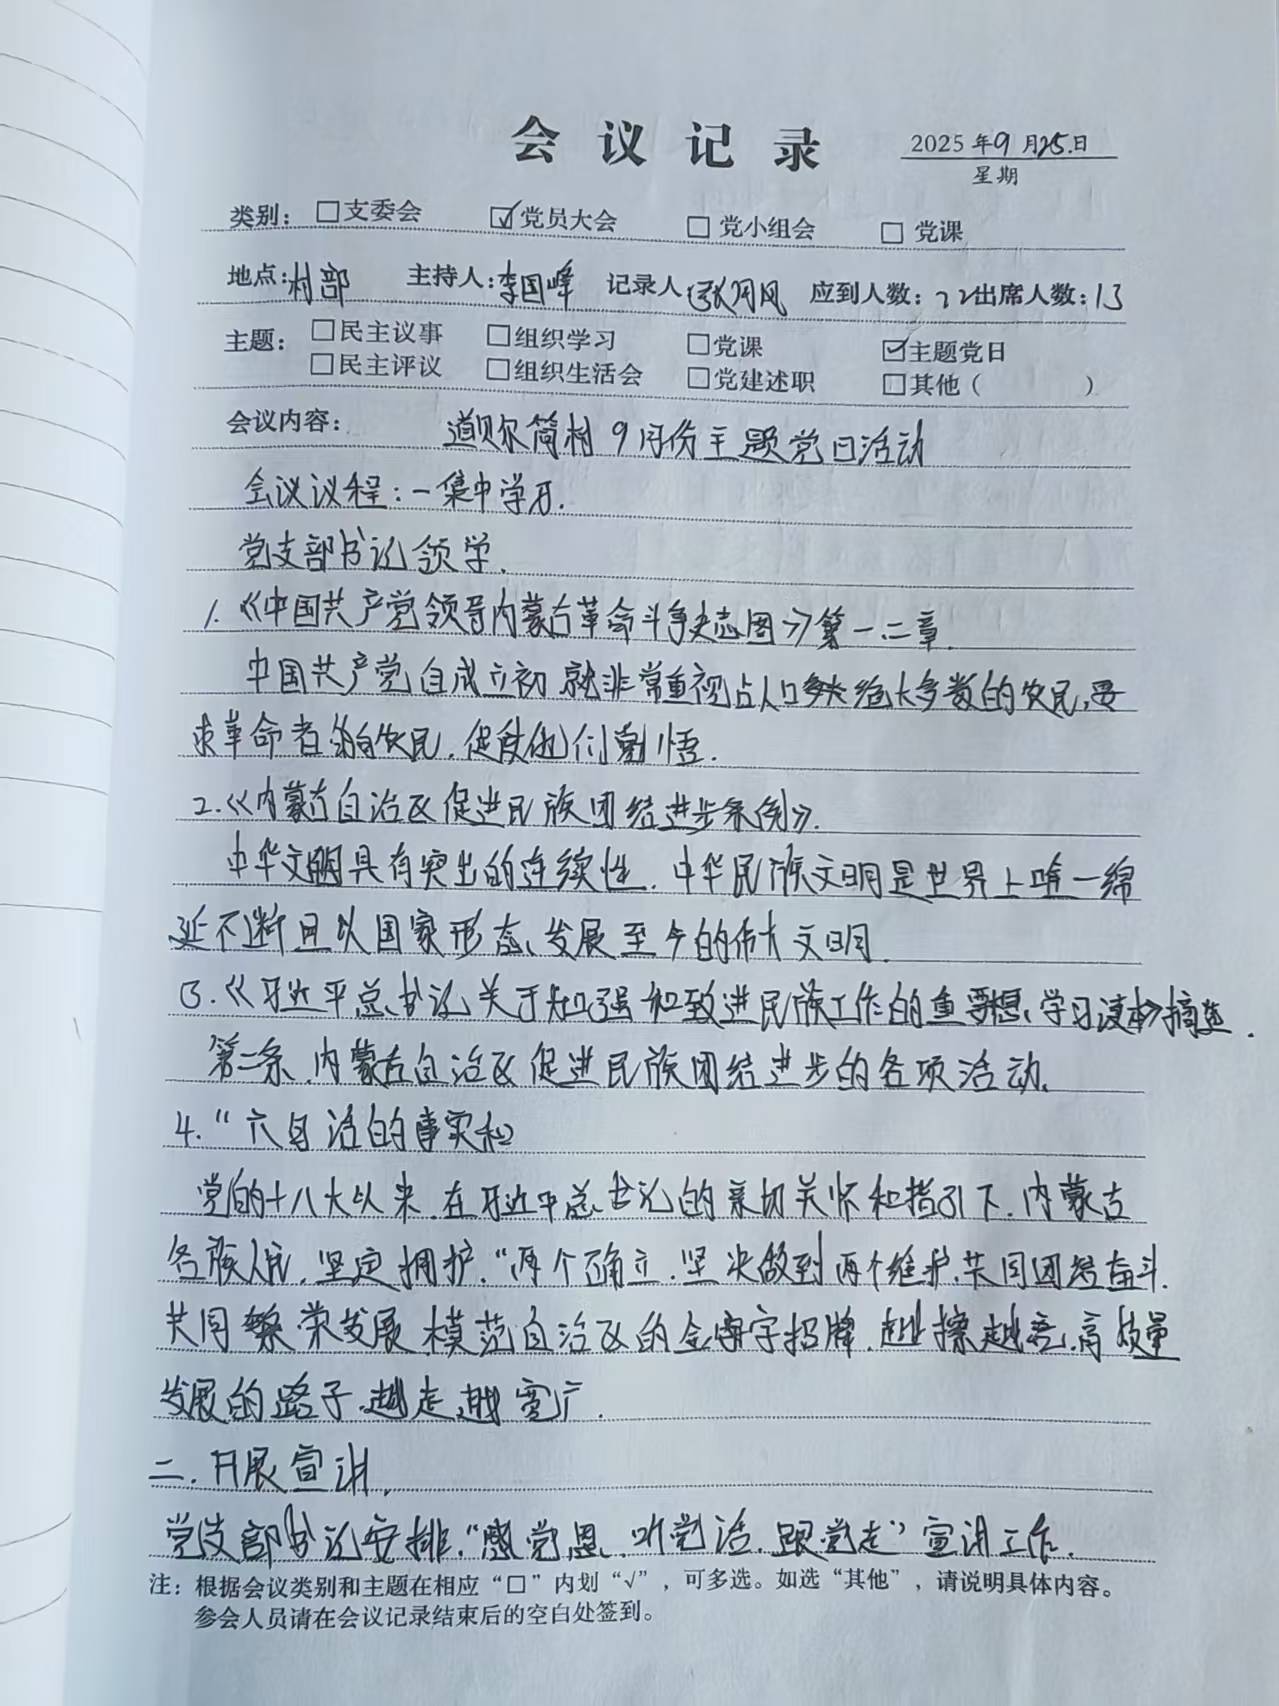 会议记录
2025年9月25日
星期
类别：□支委会 ☑党员大会 □党小组会 □党课
地点：村部 主持人：李国峰 记录人：张月凤 应到人数：22 出席人数：13
主题：□民主议事 □组织学习 □党课 ☑主题党日
□民主评议 □组织生活会 □党建述职 □其他（ ）
会议内容： 道贝尔筒村9月份主题党日活动
会议议程：一集中学习.
党支部书记领学.
1.《中国共产党领导内蒙古革命斗争史志图》第一.二章.
中国共产党自成立初就非常重视占人口绝大多数的农民,要
求革命者 农民.促使他们 悟.
2.《内蒙古自治区促进民族团结进步条例》.
中华文明具有突出的连续性.中华民族文明是世界上唯一绵
延不断且以国家形态、发展至今的伟大文明.
3.《习近平总书记关于加强和改进民族工作的重要思想、学习读本》摘选.
第二条.内蒙古自治区促进民族团结进步的各项活动.
4."六句话的事实和
党的十八大以来.在习近平总书记的亲切关怀和指引下.内蒙古
各族人民.坚定拥护."两个确立.坚决做到两个维护.共同团结奋斗.
共同繁荣发展.模范自治区的金字招牌.越擦越亮.高质量
发展的路子.越走越宽广.
二.开展宣讲.
党支部书记安排."感党恩.听党话.跟党走"宣讲工作.
注：根据会议类别和主题在相应“□”内划“√”，可多选。如选“其他”，请说明具体内容。
参会人员请在会议记录结束后的空白处签到。